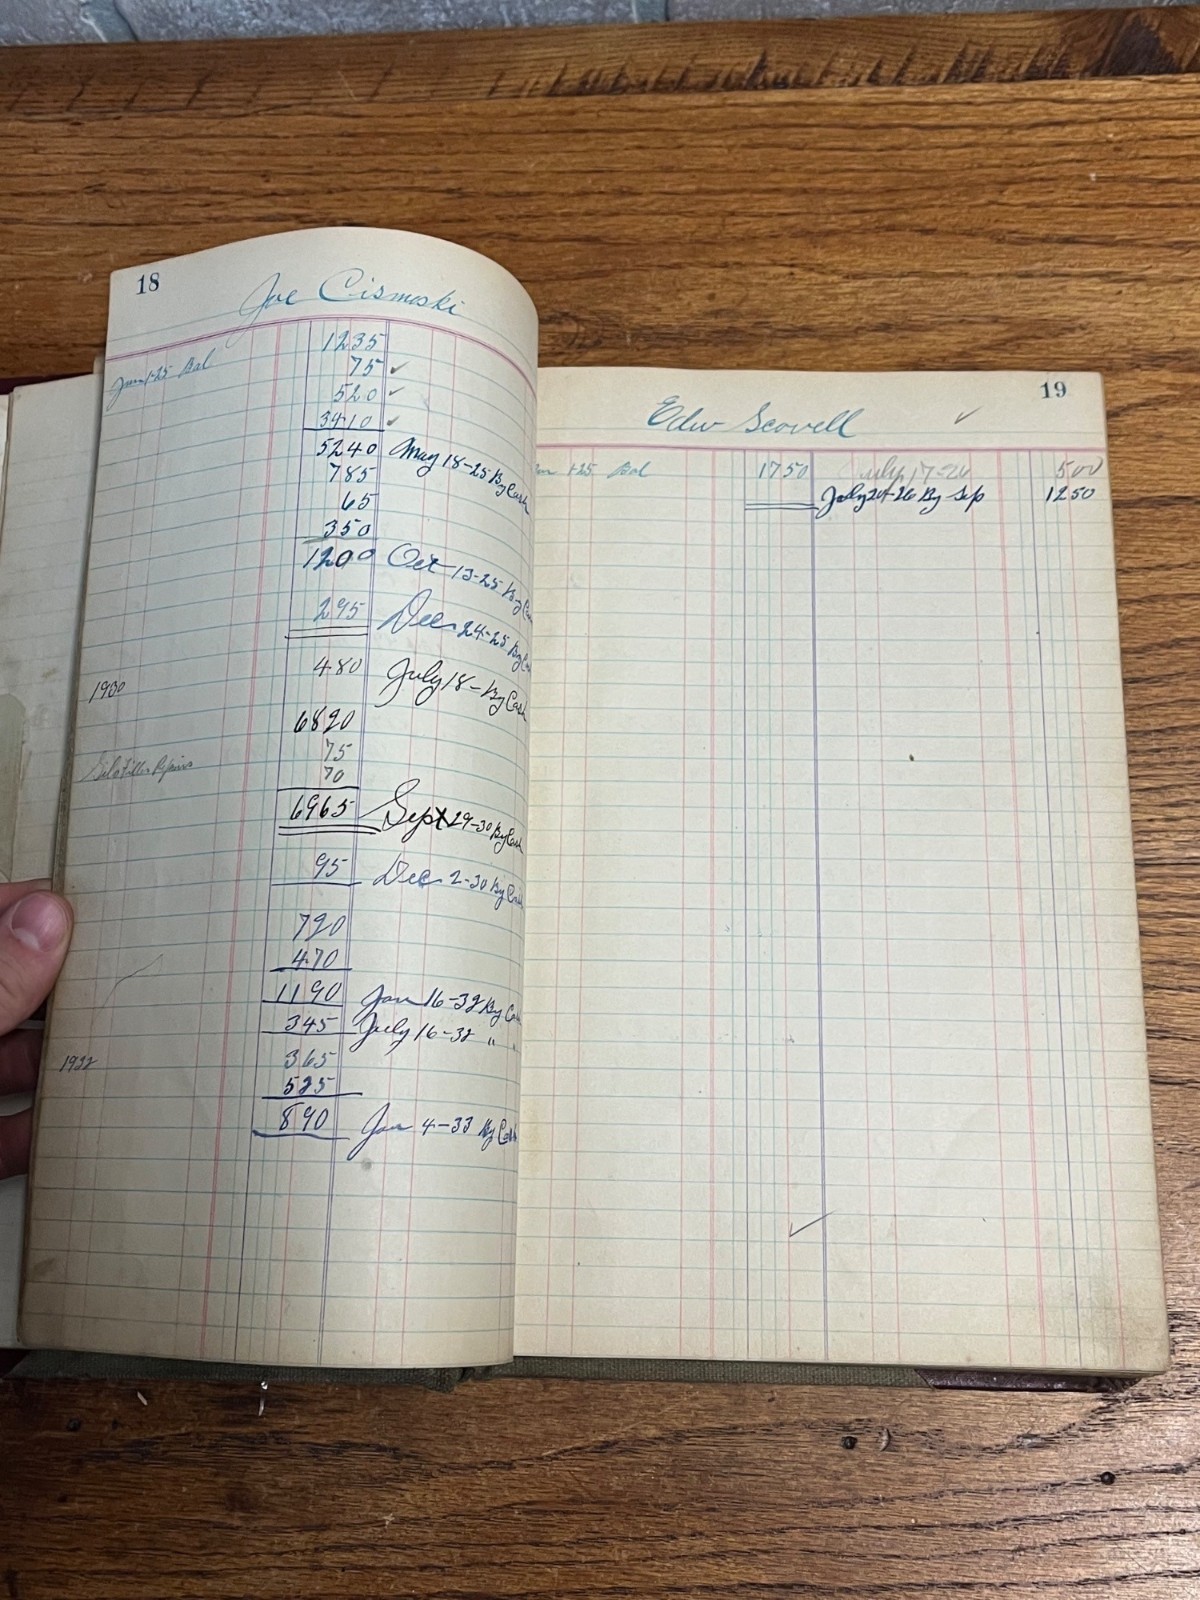 18
Joe Cismoski
1235
Jan 1-25 Bal 75 ✓
520 ✓
3410 ✓
5240 May 18-25 By Cash
785
65
350
1200 Oct 13-25 By Cash
295 Dec 24-25 By
480 July 18- By Cash
1930
6820
75
Silo Filler Repairs 70
6965 Sept 29-30 By Cash
95 Dec 2-30 By
720
470
1190 Jan 16-32 By
345 July 16-32 " "
1932 365
525
890 Jan 4-33 By Cash
19
Edw Scovell ✓
1-25 Bal 1750 July 17-26 500
July 24-26 By Sep 1250